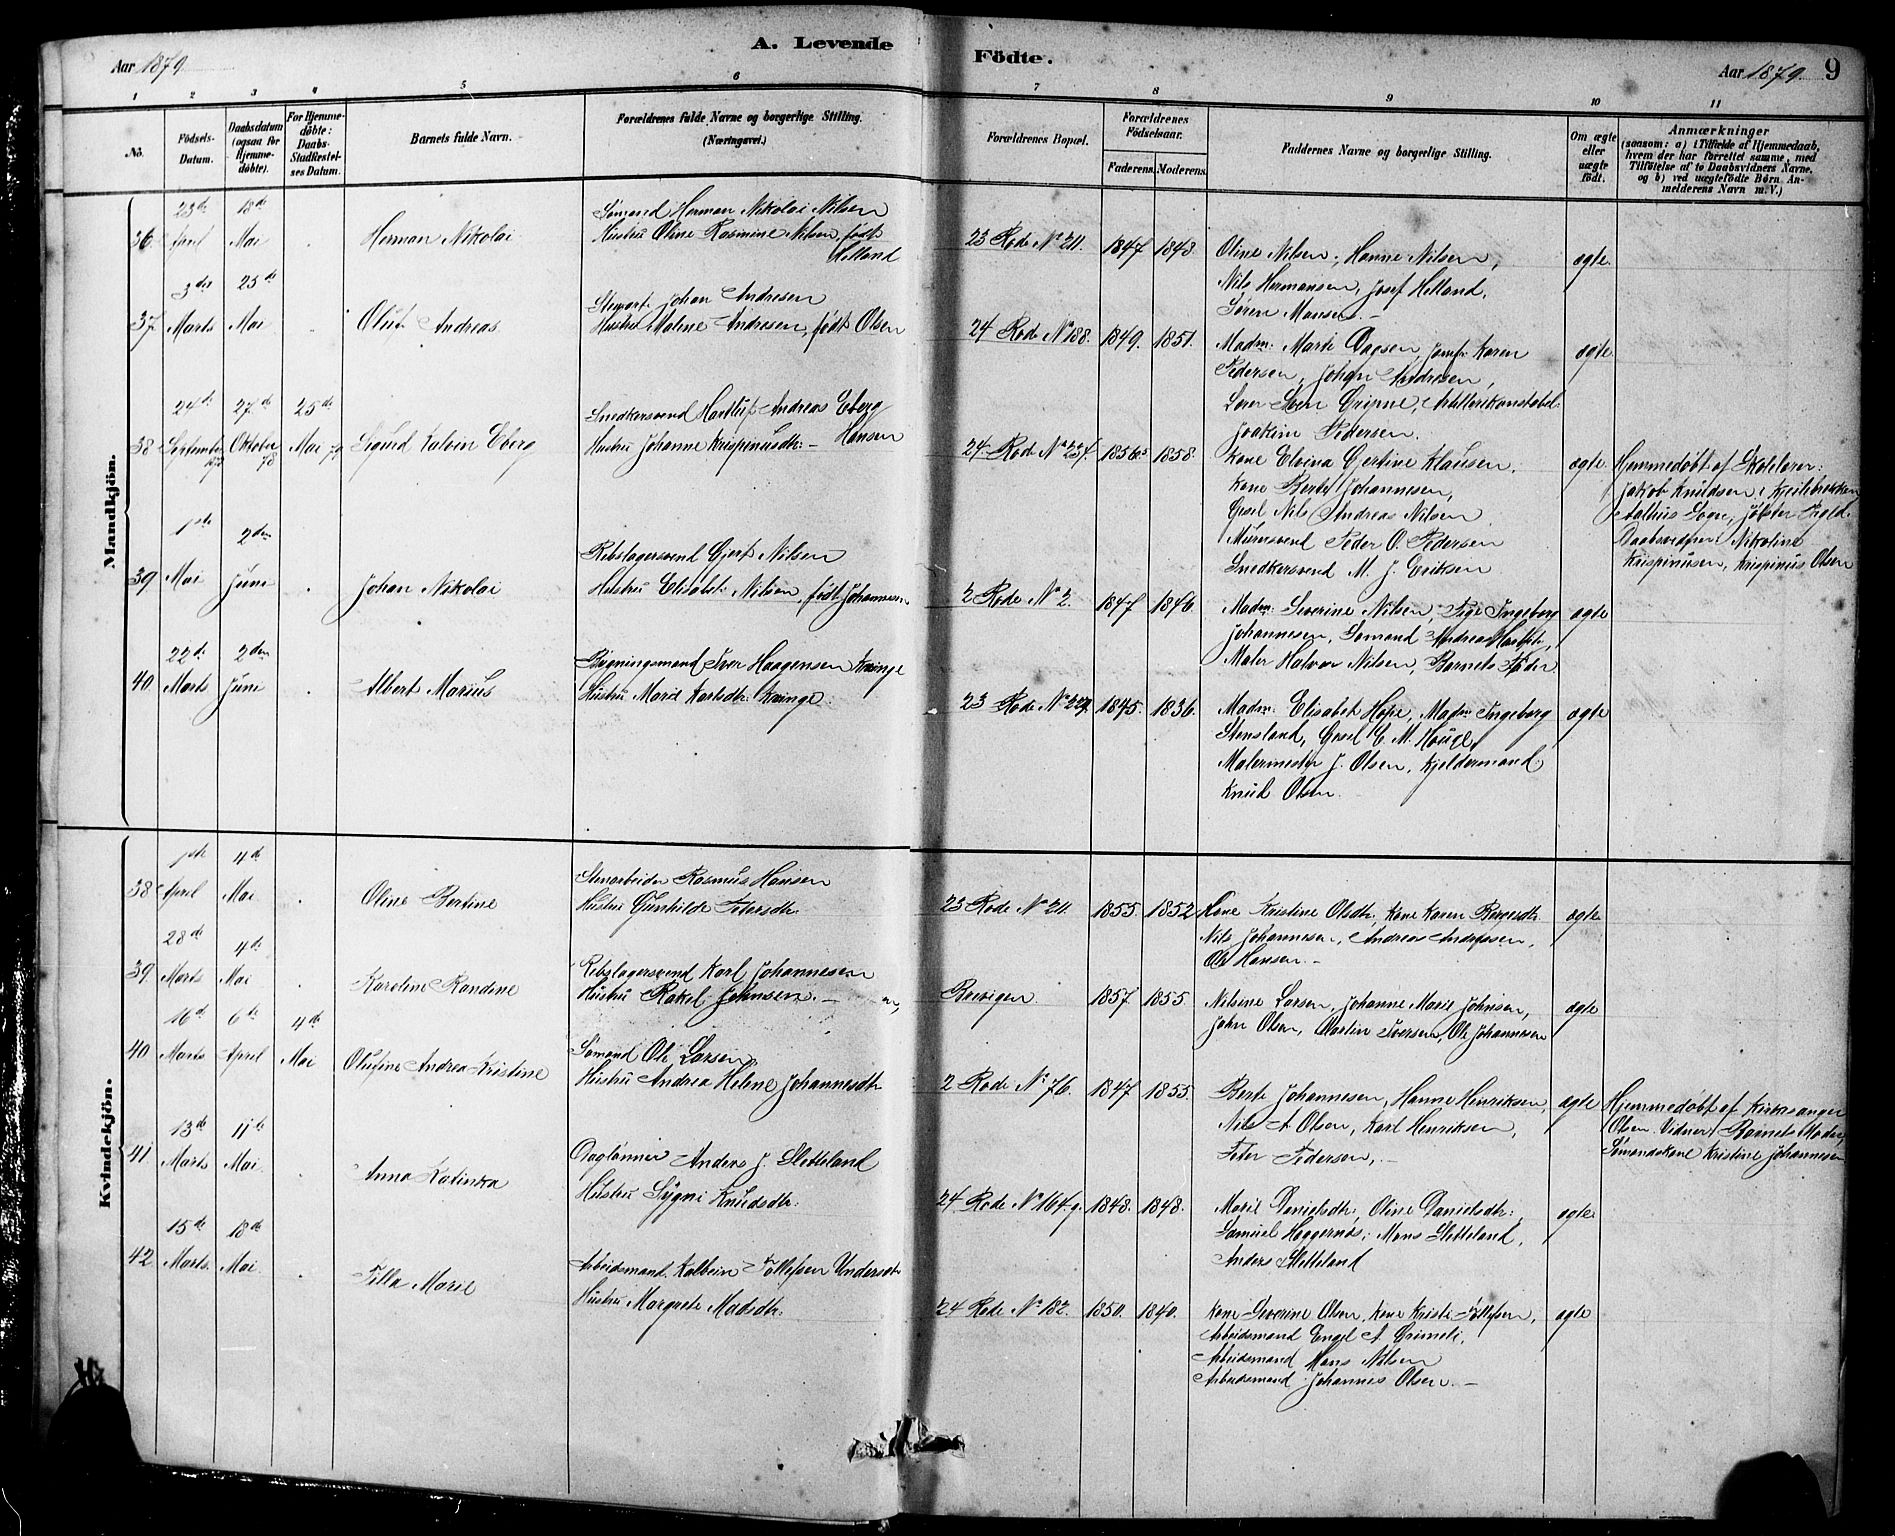 Aar 1879.
A. Levende
Födte.
Aar 1879. 9
1 2 3 4 5 6 7 8 9 10 11
No.
Födsels-Datum.
Daabsdatum (ogsaa for Hjemme-döbte).
For Hjemme-döbte: Daabs-Stadfæstel-ses Datum.
Barnets fulde Navn.
Forældrenes fulde Navne og borgerlige Stilling.
(Næringsvei.)
Forældrenes Bopæl.
Forældrenes Födselsaar.
Faderens. Moderens.
Faddernes Navne og borgerlige Stilling.
Om ægte eller uægte födt.
Anmærkninger
(saasom: a) i Tilfælde af Hjemmedaab, hvem der har forrettet samme, med Tilföielse af to Daabsvidners Navne. og b) ved uægtefödte Börn An-melderens Navn m. V.)
Mandkjön.
36 23de April 18de Mai Herman Nikolai
Sømand Herman Nikolai Nilsen
Hustru Oline Rasmine Nilsen, født Helland
23 Rode No 211. 1847 1843.
Oline Nilsen, Hanne Nilsen,
Nils Hermansen, Josef Helland,
Søren Monsen.
ægte.
37 3die Marts 25de Mai Oluf Andreas
Stewart Johan Andresen
Hustru Maline Andresen, født Olsen
24 Rode No 188. 1849. 1851.
Madm: Marte Dagsen, Jomfr Karen
Pedersen, Johan Andresen,
Artillerikonstabel
Joakim Pedersen.
ægte
38 24de September 27de Oktober 78 25de Mai 79 Sigurd Kalvin Eberg
Snedkersvend Andreas Eberg Hansen
Hustru Johanne Krispinusdtr:
24 Rode No 1856. 1858.
Kone Elvina Gjertine Klausen,
Kone Berte Johannesen,
Gesel Nils Andreas Nilsen
Murersvend Peder O. Pedersen
Snedkersvend M. J. Eriksen
ægte
Hjemmedøbt af Skolelærer:
Jakob Knudsen,
Aalhus Sogn, Jølster Pgld.
Daabsvidner: Nikoline
Krispinusen, Krispinus Olsen
39 1ste Mai 2den Juni Johan Nikolai
Rebslagersvend Gjert Nilsen
Hustru Elisabet Nilsen, født Johannesen
2 Rode No 2. 1847 1846.
Madm: Severine Nilsen, Pige Ingeborg
Johannesen, Sømand Andreas
Maler Halvor Nilsen, Barnets Fader
ægte
40 22de Marts 2den Juni Albert Marius
Bygningsmand Iver Haagensen Kvinge
Hustru Marie Karlsdtr: Kvinge
23 Rode No 1845. 1836.
Madm: Elisabet Hope, Madm Ingeborg
Stensland, Gesel C. M. Hauge,
Malermester J. Olsen, Kjeldermand
Knud Olsen.
ægte
Kvindekjön.
38 1ste April 4de Mai Oline Bertine
Stenarbeider Rasmus Hansen
Hustru Gunhilde Petersdtr.
23 Rode No 211. 1855. 1852
Kone Kristine Olsdtr, Kone Karen
Nils Johannesen, Andreas Andreasen,
Ole Hansen.
ægte
39 28de Marts 4de Mai Karoline Randine
Rebslagersvend Karl Johannesen
Hustru Rakel Johnsen.
1857 1855.
Nilsine Larsen, Johanne Marie Johnsen,
John Olsen, Martin Iversen, Ole Johannesen
ægte
40 16de Marts 6te April 4de Mai Olufine Andrea Kristine
Sømand Ole Larsen
Hustru Andrea Helene Johannesdtr
2 Rode No 76. 1847 1855.
Berte Johannesen, Hanne Henriksen,
Nils A Olsen, Karl Henriksen,
Peter Pedersen,
ægte
Hjemmedøbt af Kirkesanger
Olsen. Vidner: Barnets Moder,
Sømandskone Kristine Johannesen
41 13de Marts 11te Mai Anna Katinka
Dagløner Anders J. Sletteland
Hustru Sygni Knudsdtr.
24 Rode No 164g. 1843. 1848.
Marie Danielsdtr, Oline Danielsdtr:,
Samuel Heggernæs, Mons Sletteland,
Anders Sletteland
ægte
42 15de Marts 18de Mai Tilla Marie
Arbeidsmand Kolbein Tollefsen
Hustru Margrete Madsdtr:
24 Rode No 182. 1850. 1840.
Kone Severine Olsen, Kone Kristi Tollefsen,
Arbeidsmand Engel A.
Arbeidsmand Hans Nilsen
Arbeidsmand Johannes Olsen.
ægte